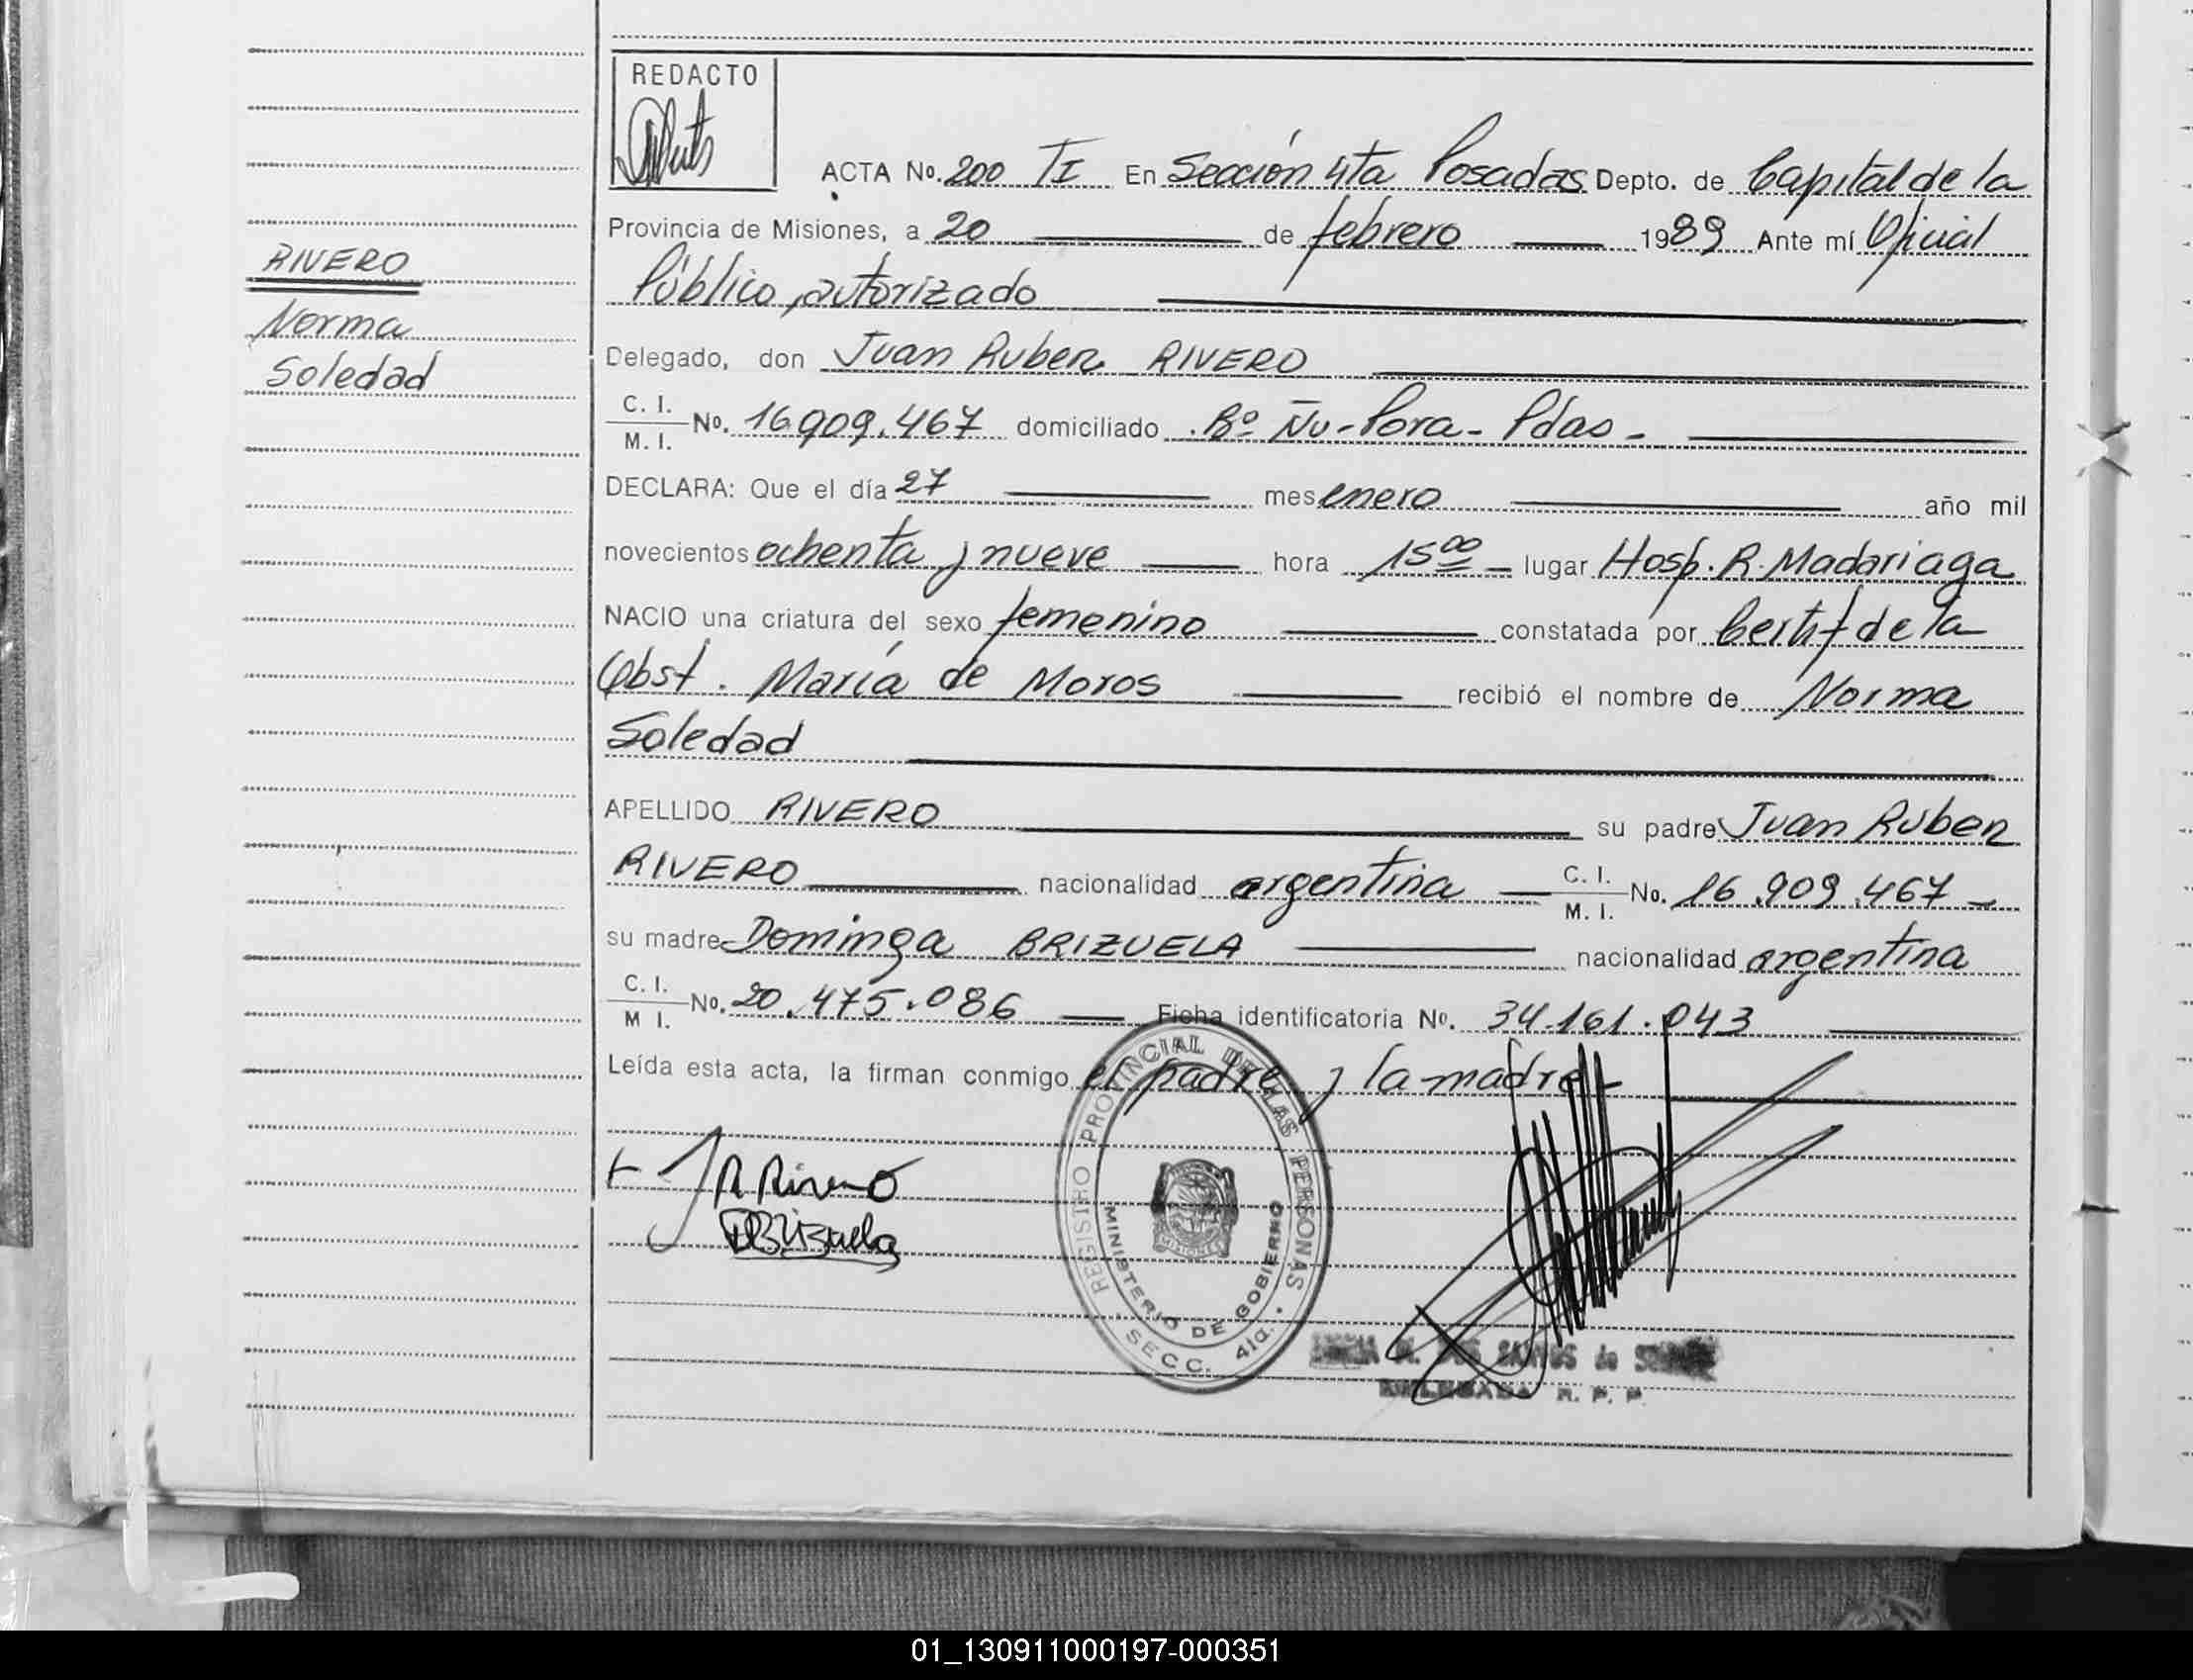 REDACTO
ACTA No. 200 TI En Sección 4ta Posadas Depto. de Capital de la
Provincia de Misiones, a 20 de febrero 1989 Ante mí Oficial
Público, autorizado
RIVERO
Norma
Soledad
Delegado, don Juan Ruben RIVERO
C. I.
M. I. No. 16.909.467 domiciliado Bº Ñu-Pora- Pdas -
DECLARA: Que el día 27 mes enero año mil
novecientos ochenta y nueve hora 15 00 lugar Hosp. R. Madariaga
NACIO una criatura del sexo femenino constatada por Certif de la
Obst. María de Moros recibió el nombre de Norma
Soledad
APELLIDO RIVERO su padre Juan Ruben
RIVERO nacionalidad argentina C. I. M. I. No. 16.909.467
su madre Dominga BRIZUELA nacionalidad argentina
C. I.
M I. No. 20.475.086 Ficha identificatoria No. 34.161.043
Leída esta acta, la firman conmigo el padre y la madre-
JR Rivero
DBrizuela
REGISTRO PROVINCIAL DE LAS PERSONAS
MINISTERIO DE GOBIERNO
MISIONES
SECC. 4ta.
M. DOS SANTOS de
DELEGADA R. P. P.
01_130911000197-000351